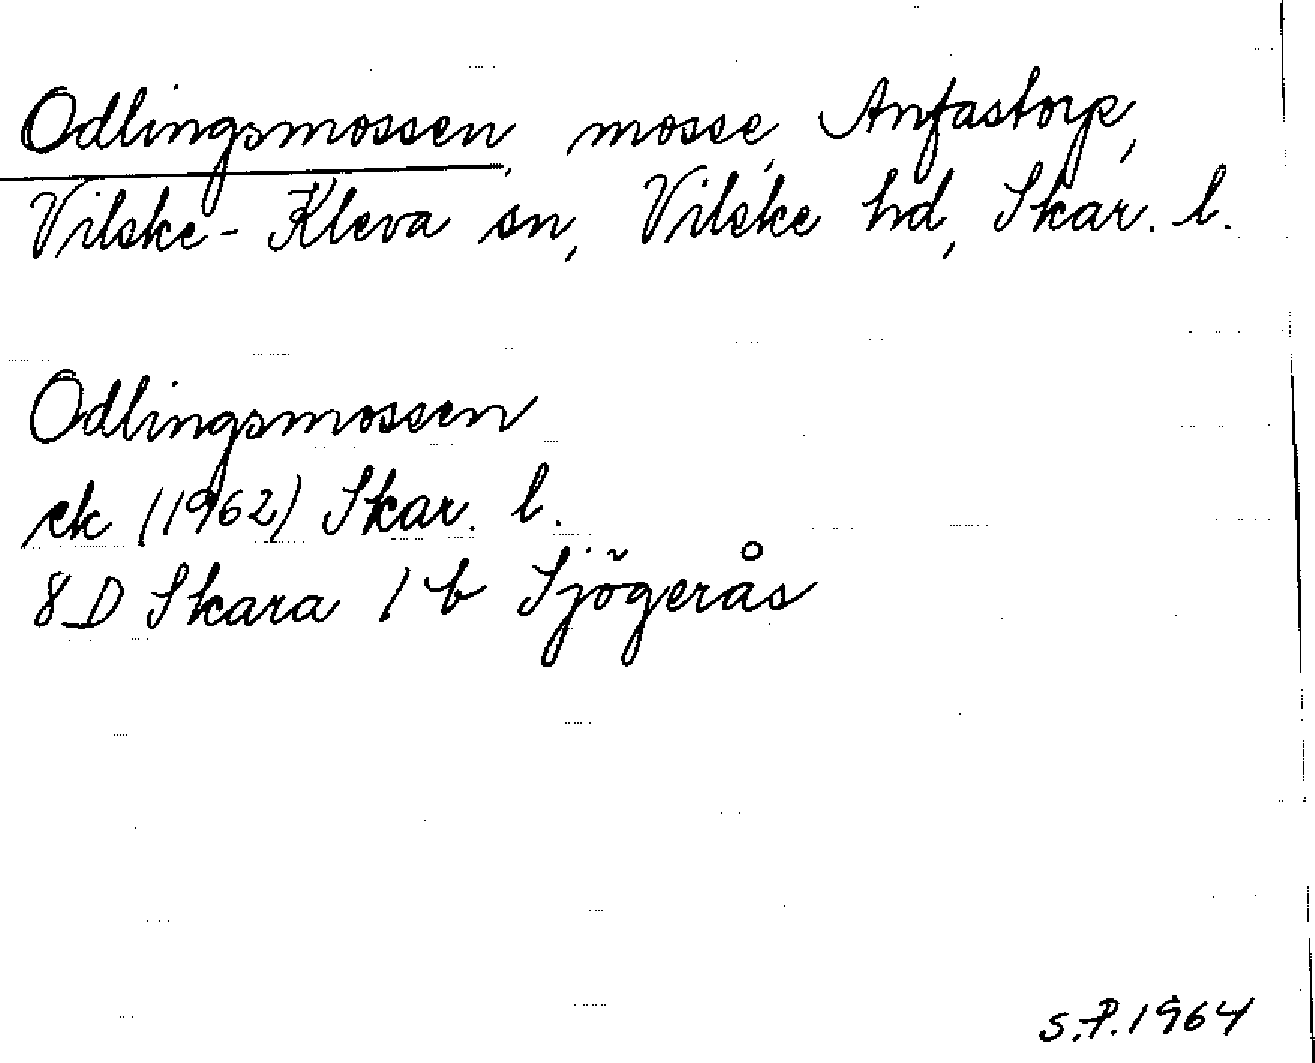 Odlingsmossen, mosse, Anfastorp,
Vilske-Kleva sn, Vilske hd, Skar. l.
Odlingsmossen
ek (1962) Skar. l.
8D Skara 1 b Sjögerås
S.P. 1964